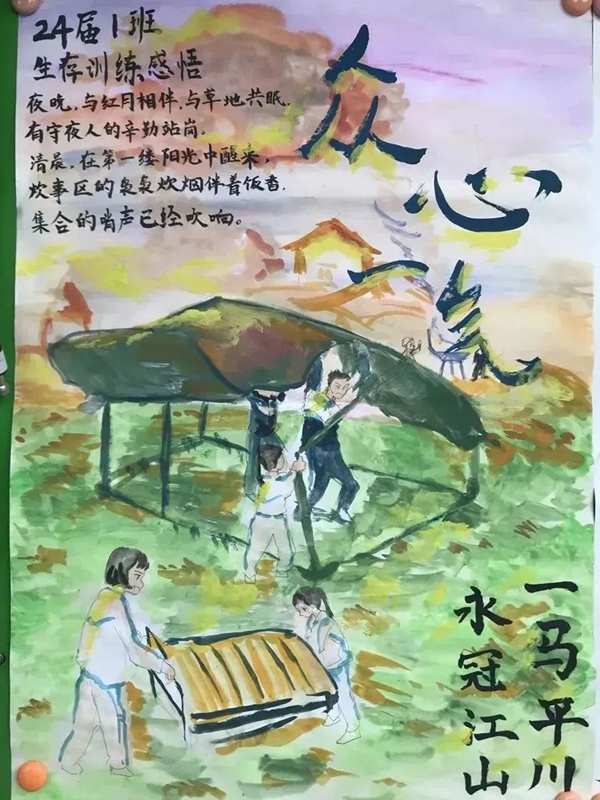 24届1班
生存训练感悟
夜晚，与红月相伴，与草地共眠。
有守夜人的辛勤站岗。
清晨，在第一缕阳光中醒来，
炊事区的袅袅炊烟伴着饭香，
集合的哨声已经吹响。
众心一气
一马平川
永冠江山